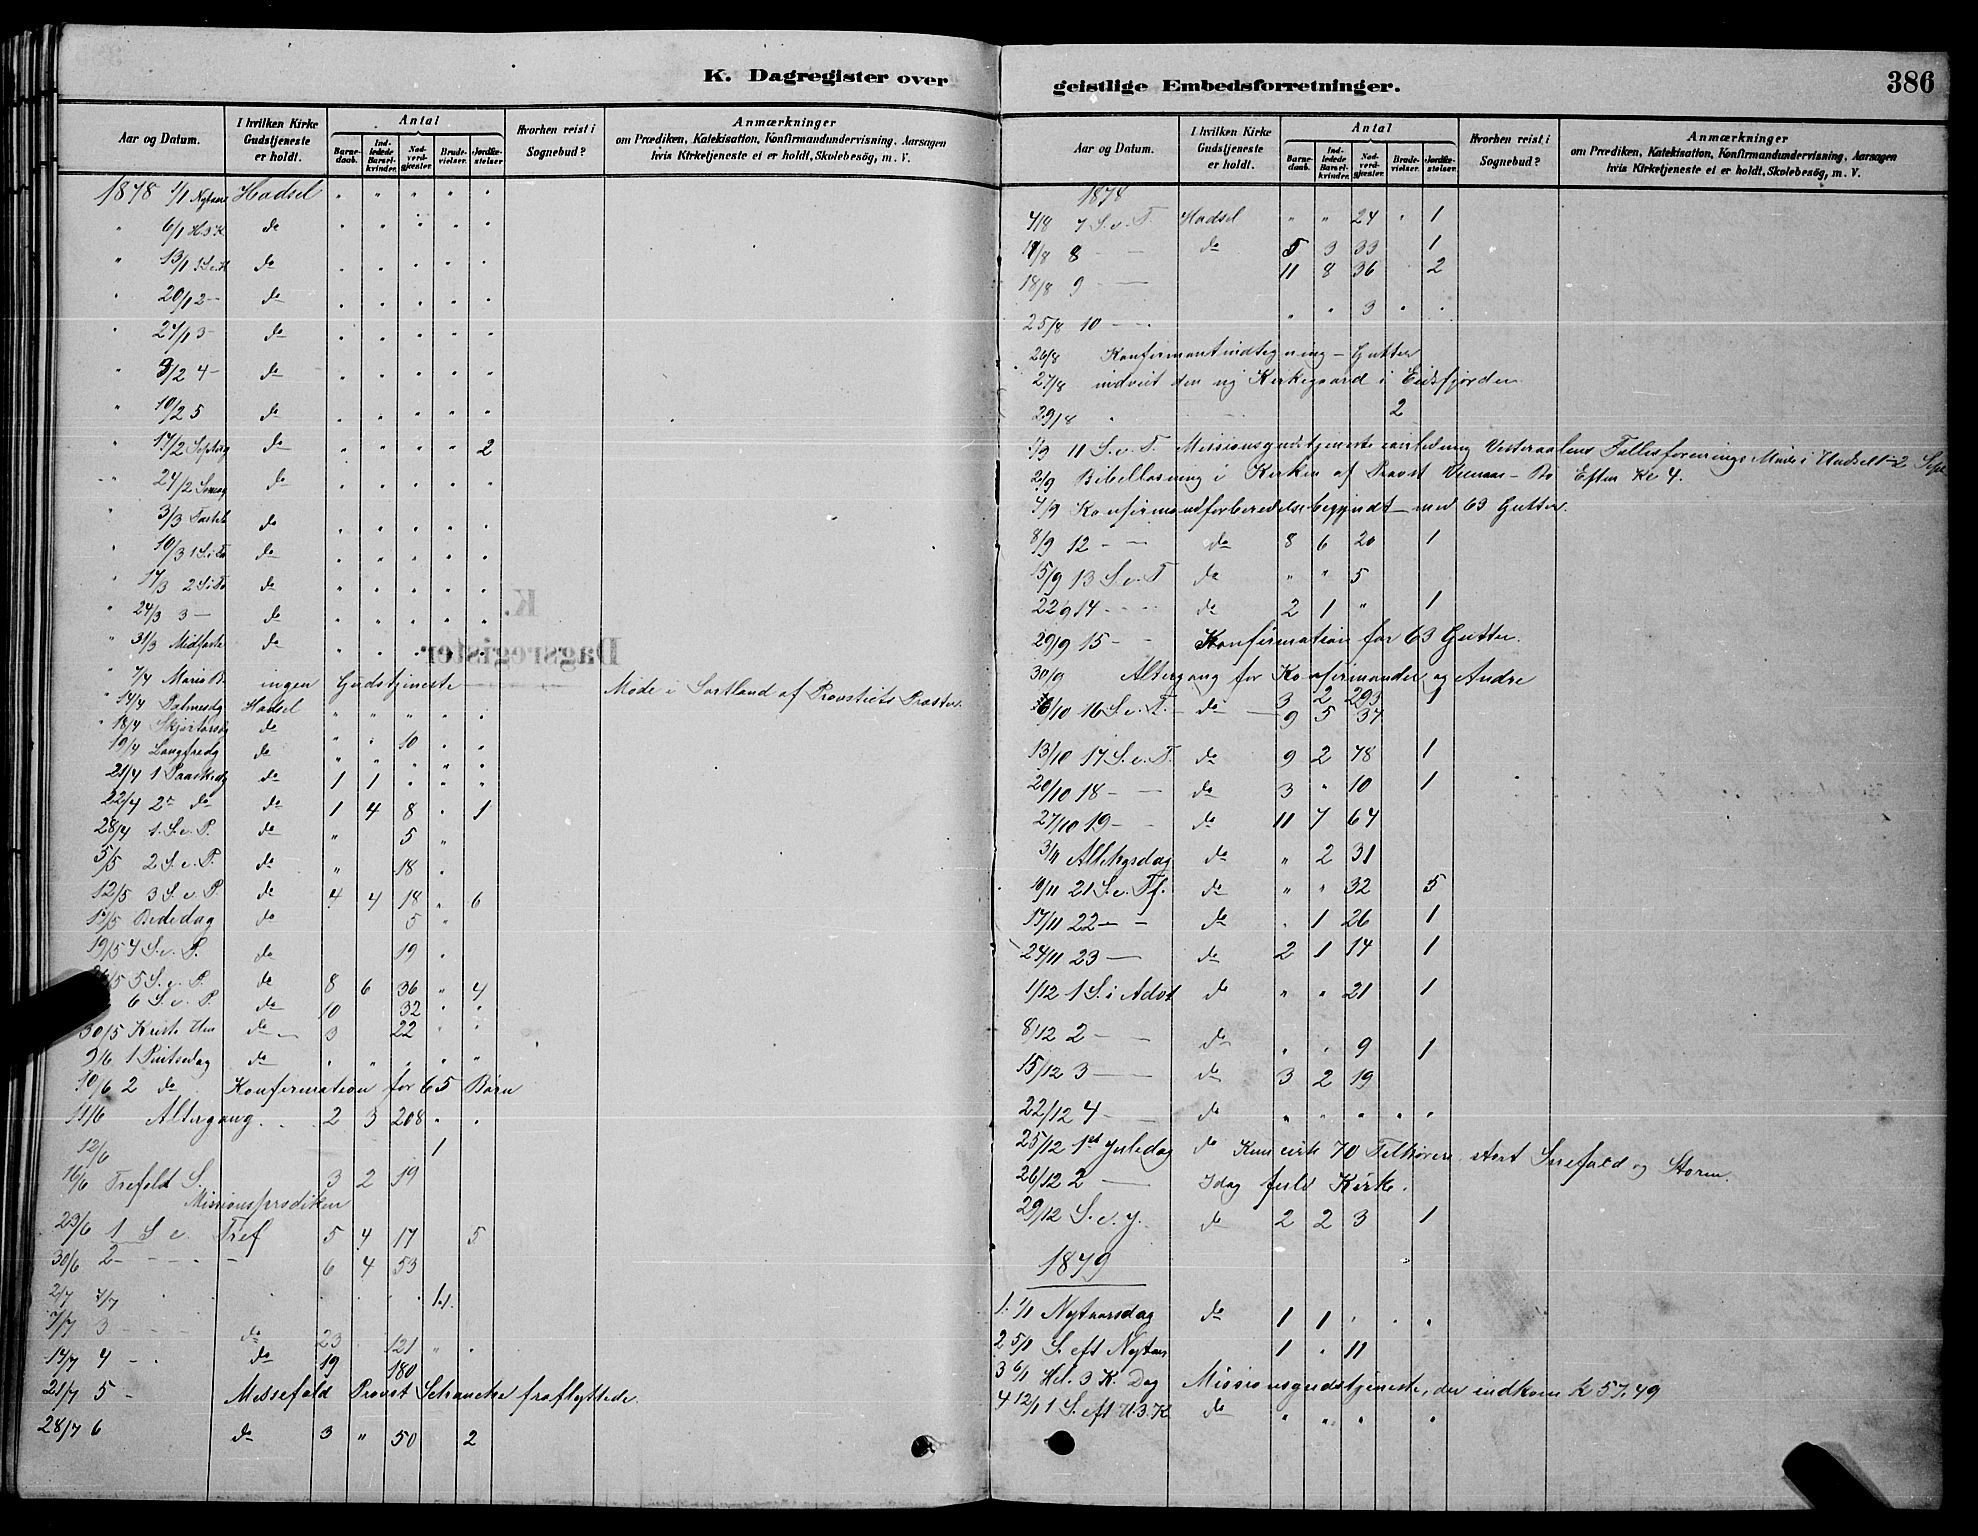 K. Dagregister over
Aar og Datum. | I hvilken Kirke Gudstjeneste er holdt. | Antal | Barnedaab. | Indledede Barselkvinder. | Nadverdgjester. | Brudevielser. | Jordfæstelser. | Hvorhen reist i Sognebud? | Anmærkninger om Prædiken, Katekisation, Konfirmandundervisning, Aarsagen hvis Kirketjeneste ei er holdt, Skolebesøg, m. V.
1878 1/1 Nytaar Hadsel " " " " "
" 6/1 H.3.K do " " " " "
" 13/1 1 S.e.H do " " " " "
" 20/1 2 - do " " " " "
" 27/1 3 - do " " " " "
" 3/2 4 - do " " " " "
" 10/2 5 do " " " " "
" 17/2 Septag do " " " " 2
" 24/2 do " " " " "
" 3/3 Fastel do " " " " "
" 10/3 1 S.i.Fa do " " " " "
" 17/3 2 S.i.Fa do " " " " "
" 24/3 3 - do " " " " "
" 31/3 Midfaste do " " " " "
" 7/4 Maria B. ingen Gudstjeneste Møde i Sortland af Provstiets Præster.
" 14/4 Palmesdg Hadsel " " " " "
" 18/4 Skjærtorsdg do " " 10 " "
19/4 Langfredg do " " " " "
21/4 1 Paaskedg do 1 1 " " "
22/4 2n do do 1 4 8 " 1
28/4 1. S.e.P. do " 5 "
5/5 2 S.e.P. do " 18 "
12/5 3 S.e.P. do 4 4 18 " 6
Bededag do 5 "
19/5 4 S.e.P. do 19 "
5 S.e.P. do 8 6 36 " 4
6 S.e.P. do 10 32 " "
30/5 Kristi Him do 3 22 " "
9/6 1 Pintsedag do " " " " "
10/6 2 do Konfirmation for 65 Børn
11/6 Altergang 2 3 208 " "
12/6 1
16/6 Trefold S. 3 2 19
Missionsprædiken
23/6 1 S e. Tref 5 4 17 5
30/6 2 - - - - 6 4 53
2/7 7/7 1.1.
7/7 3 - - - do 23 121 " "
14/7 4 - - do 19 180
21/7 5 - Messefald Provst Schancke fraflyttede.
28/7 6 do 3 " 50 2
K.
Dagsregister
geistlige Embedsforretninger. 386
Aar og Datum. | I hvilken Kirke Gudstjeneste er holdt. | Antal | Barnedaab. | Indledede Barselkvinder. | Nadverdgjester. | Brudevielser. | Jordfæstelser. | Hvorhen reist i Sognebud? | Anmærkninger om Prædiken, Katekisation, Konfirmandundervisning, Aarsagen hvis Kirketjeneste ei er holdt, Skolebesøg, m. V.
1878
4/8 7 S.e.T. Hadsel " " 24 " 1
11/8 8 - - do 5 3 33 1
18/8 9 - - 11 8 36 2
25/8 10 - - " " 3 " "
26/8 Konfirmantindtegning - Gutter
27/8 indviet den ny Kirkegaard i Eidsfjorden
29/8 " 2
1/9 11 S.e.T. Missionsgudstjeneste anledning Vesteraalens Fællesforenings Møde i Hadsel 1-2 Sept
2/9 Bibellæsning i Kirken af Provst - Bø Efter Kl 4.
4/9 Konfirmandforberedelse begyndt - med 63 Gutter.
8/9 12 - - do 8 6 20 1
15/9 13 S.e.T do " " 5
22/9 14 - - do 2 1 " 1
29/9 15 - - Konfirmation for 63 Gutter.
30/9 Altergang for Konfirmander og Andre
3 2 293 1
6/10 16 S.e.T. - do - 9 5 37
13/10 17 S.e.T. do 9 2 78 1
20/10 18 - - do 3 " 10 1
27/10 19 - - do 11 7 64
3/11 Allehgsdag do " 2 31
10/11 21 S.e.Tf. do " " 32 5
17/11 22 - - do . 1 26 1
24/11 23 - do 2 1 14 1
1/12 1 S. i Advt do " " 21 1
8/12 2 - do " " 9 1
15/12 3 - - do 3 2 19
22/12 4 - do " " " " "
25/12 1st Juledag do Kun cirk 70 Tilhørere stort Snefald og Storm.
26/12 2 - Idag fuld Kirke.
29/12 S.e.J. do 2 2 3 1
1879
1. 1/1 Nytaarsdag do 1 1 " " "
2 5/1 S. eft Nytaar 1 " 11
3 6/1 Hel. 3 K. Dag Missionsgudstjeneste, der indkom k 57.49
4 12/1 1 S. eft H.3.K do " " " "